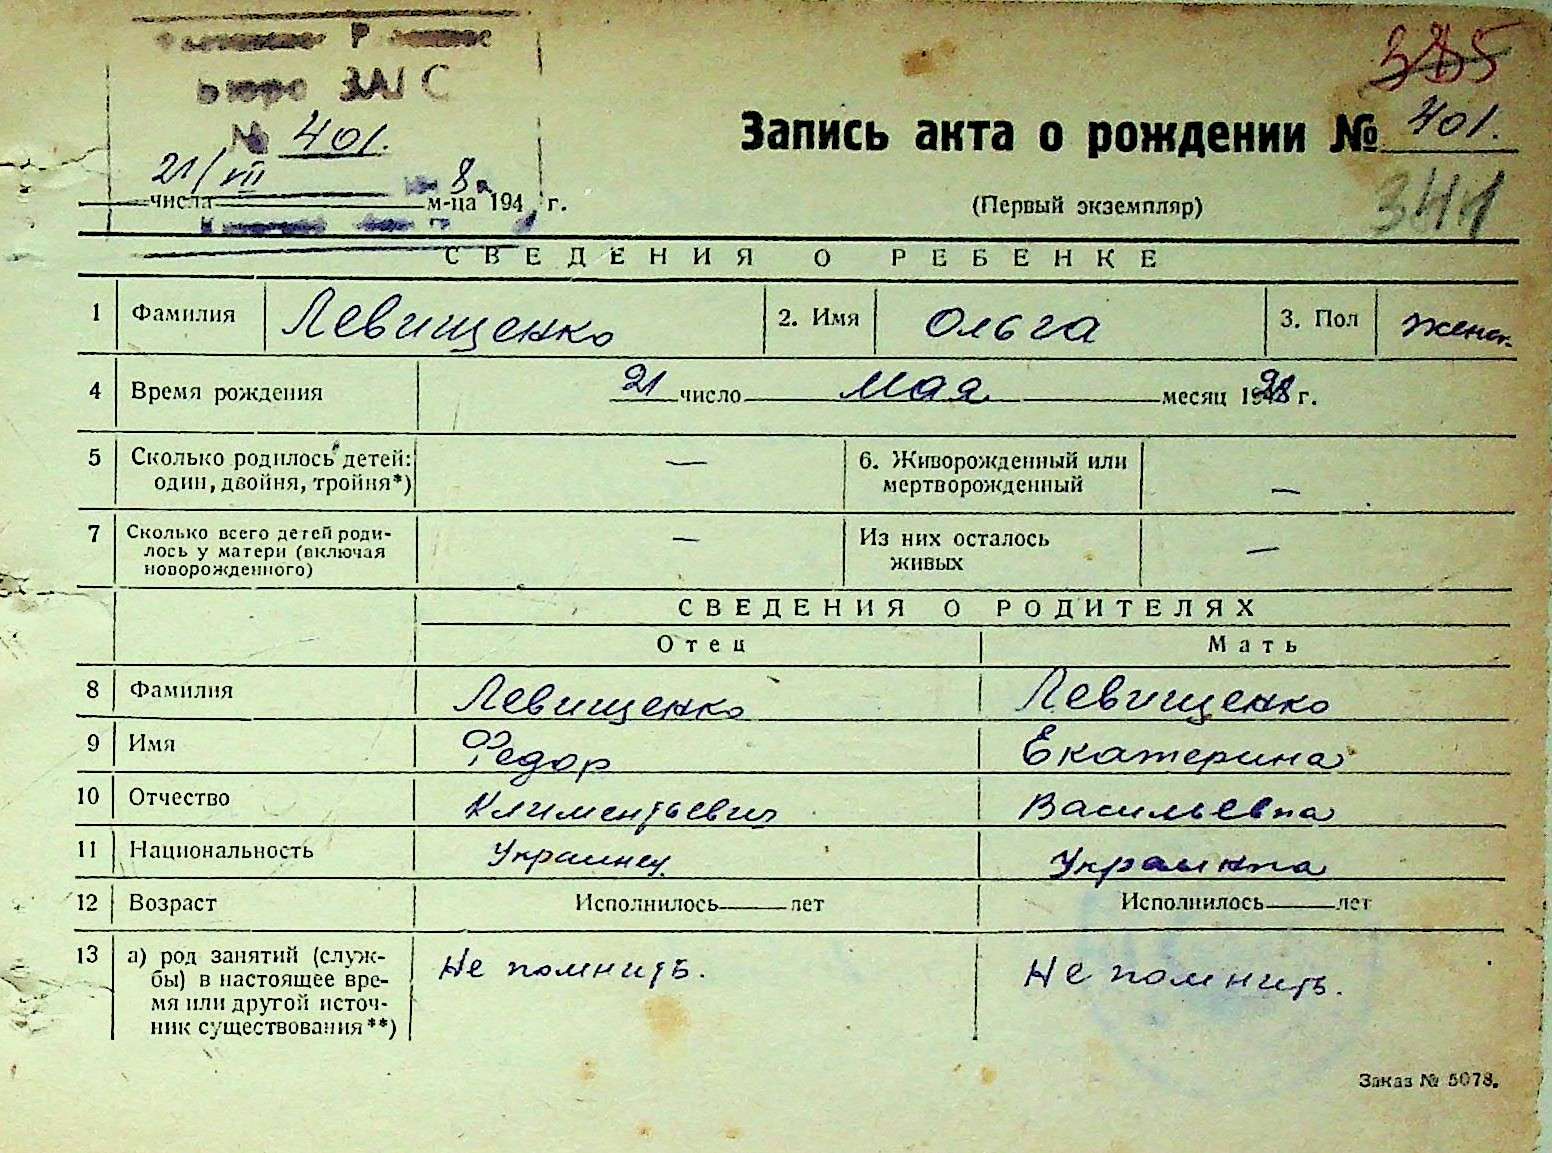 Бюро ЗАГС
№ 401.
21/VII 8
числа м-ца 194 г.
385
Запись акта о рождении № 401.
(Первый экземпляр)
344
СВЕДЕНИЯ О РЕБЕНКЕ
1 Фамилия Левищенко 2. Имя Ольга 3. Пол женск.
4 Время рождения 21 число мая месяц г.
5 Сколько родилось детей: — 6. Живорожденный или
один, двойня, тройня*) мертворожденный —
7 Сколько всего детей роди- — Из них осталось —
лось у матери (включая живых
новорожденного)
СВЕДЕНИЯ О РОДИТЕЛЯХ
Отец Мать
8 Фамилия Левищенко Левищенко
9 Имя Федор Екатерина
10 Отчество Климентьевич Васильевна
11 Национальность Украинец Украинка
12 Возраст Исполнилось лет Исполнилось лет
13 а) род занятий (служ- Не помнить. Не помнить.
бы) в настоящее вре-
мя или другой источ-
ник существования**)
Заказ № 5078.